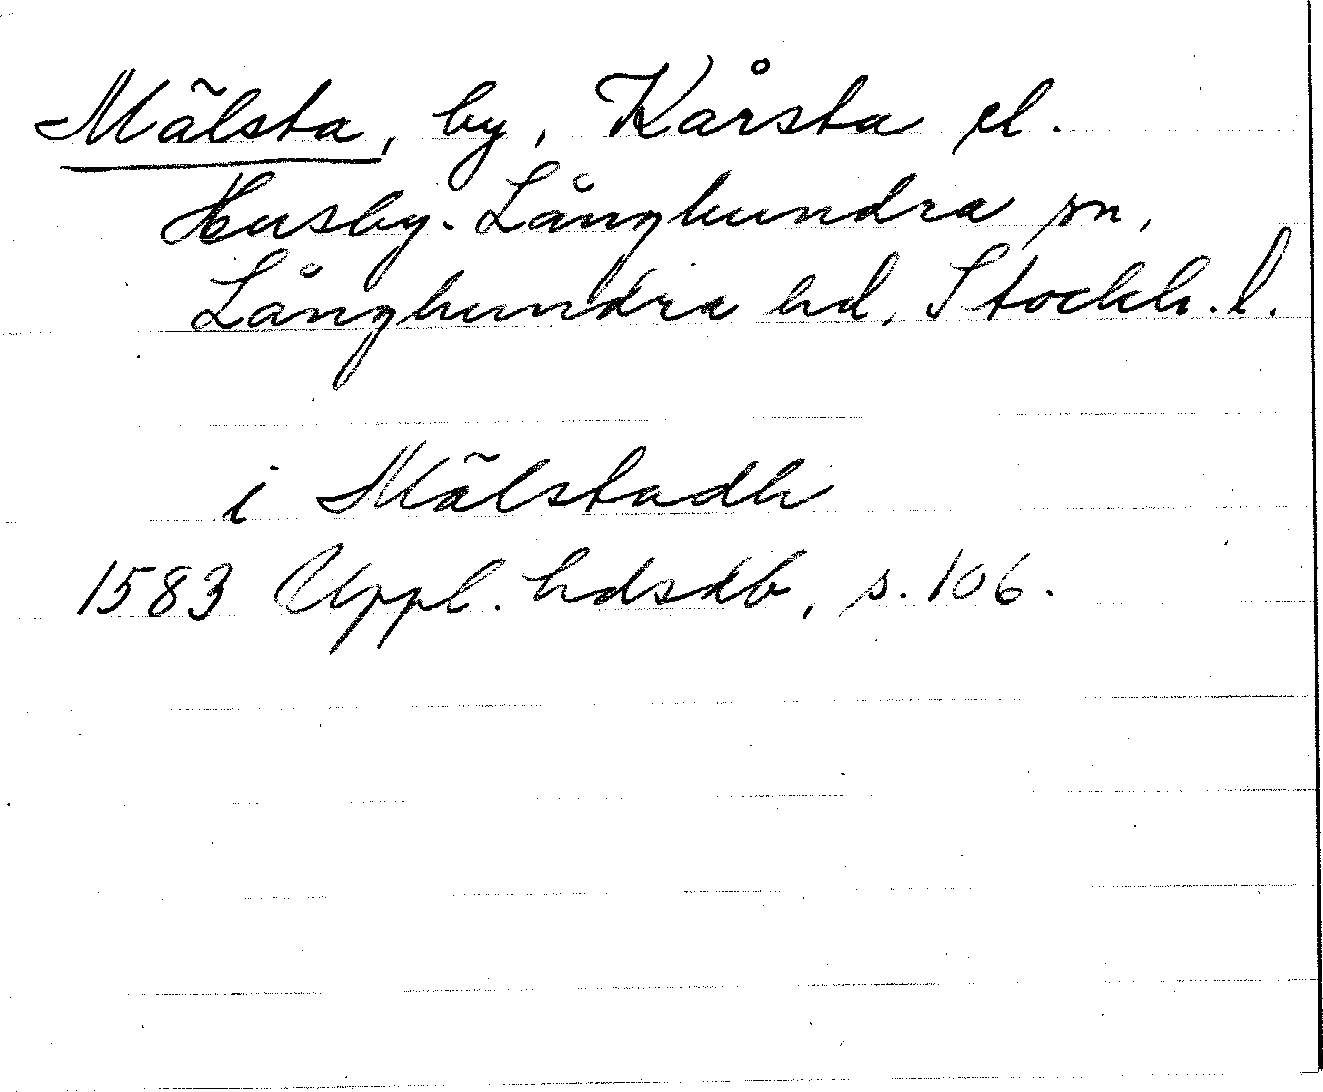 Mälsta, by, Kårsta el.
Husby-Långhundra sn,
Långhundra hd, Stockh. l.
i Mälstadh
1583 Uppl. hdsdb, s. 106.